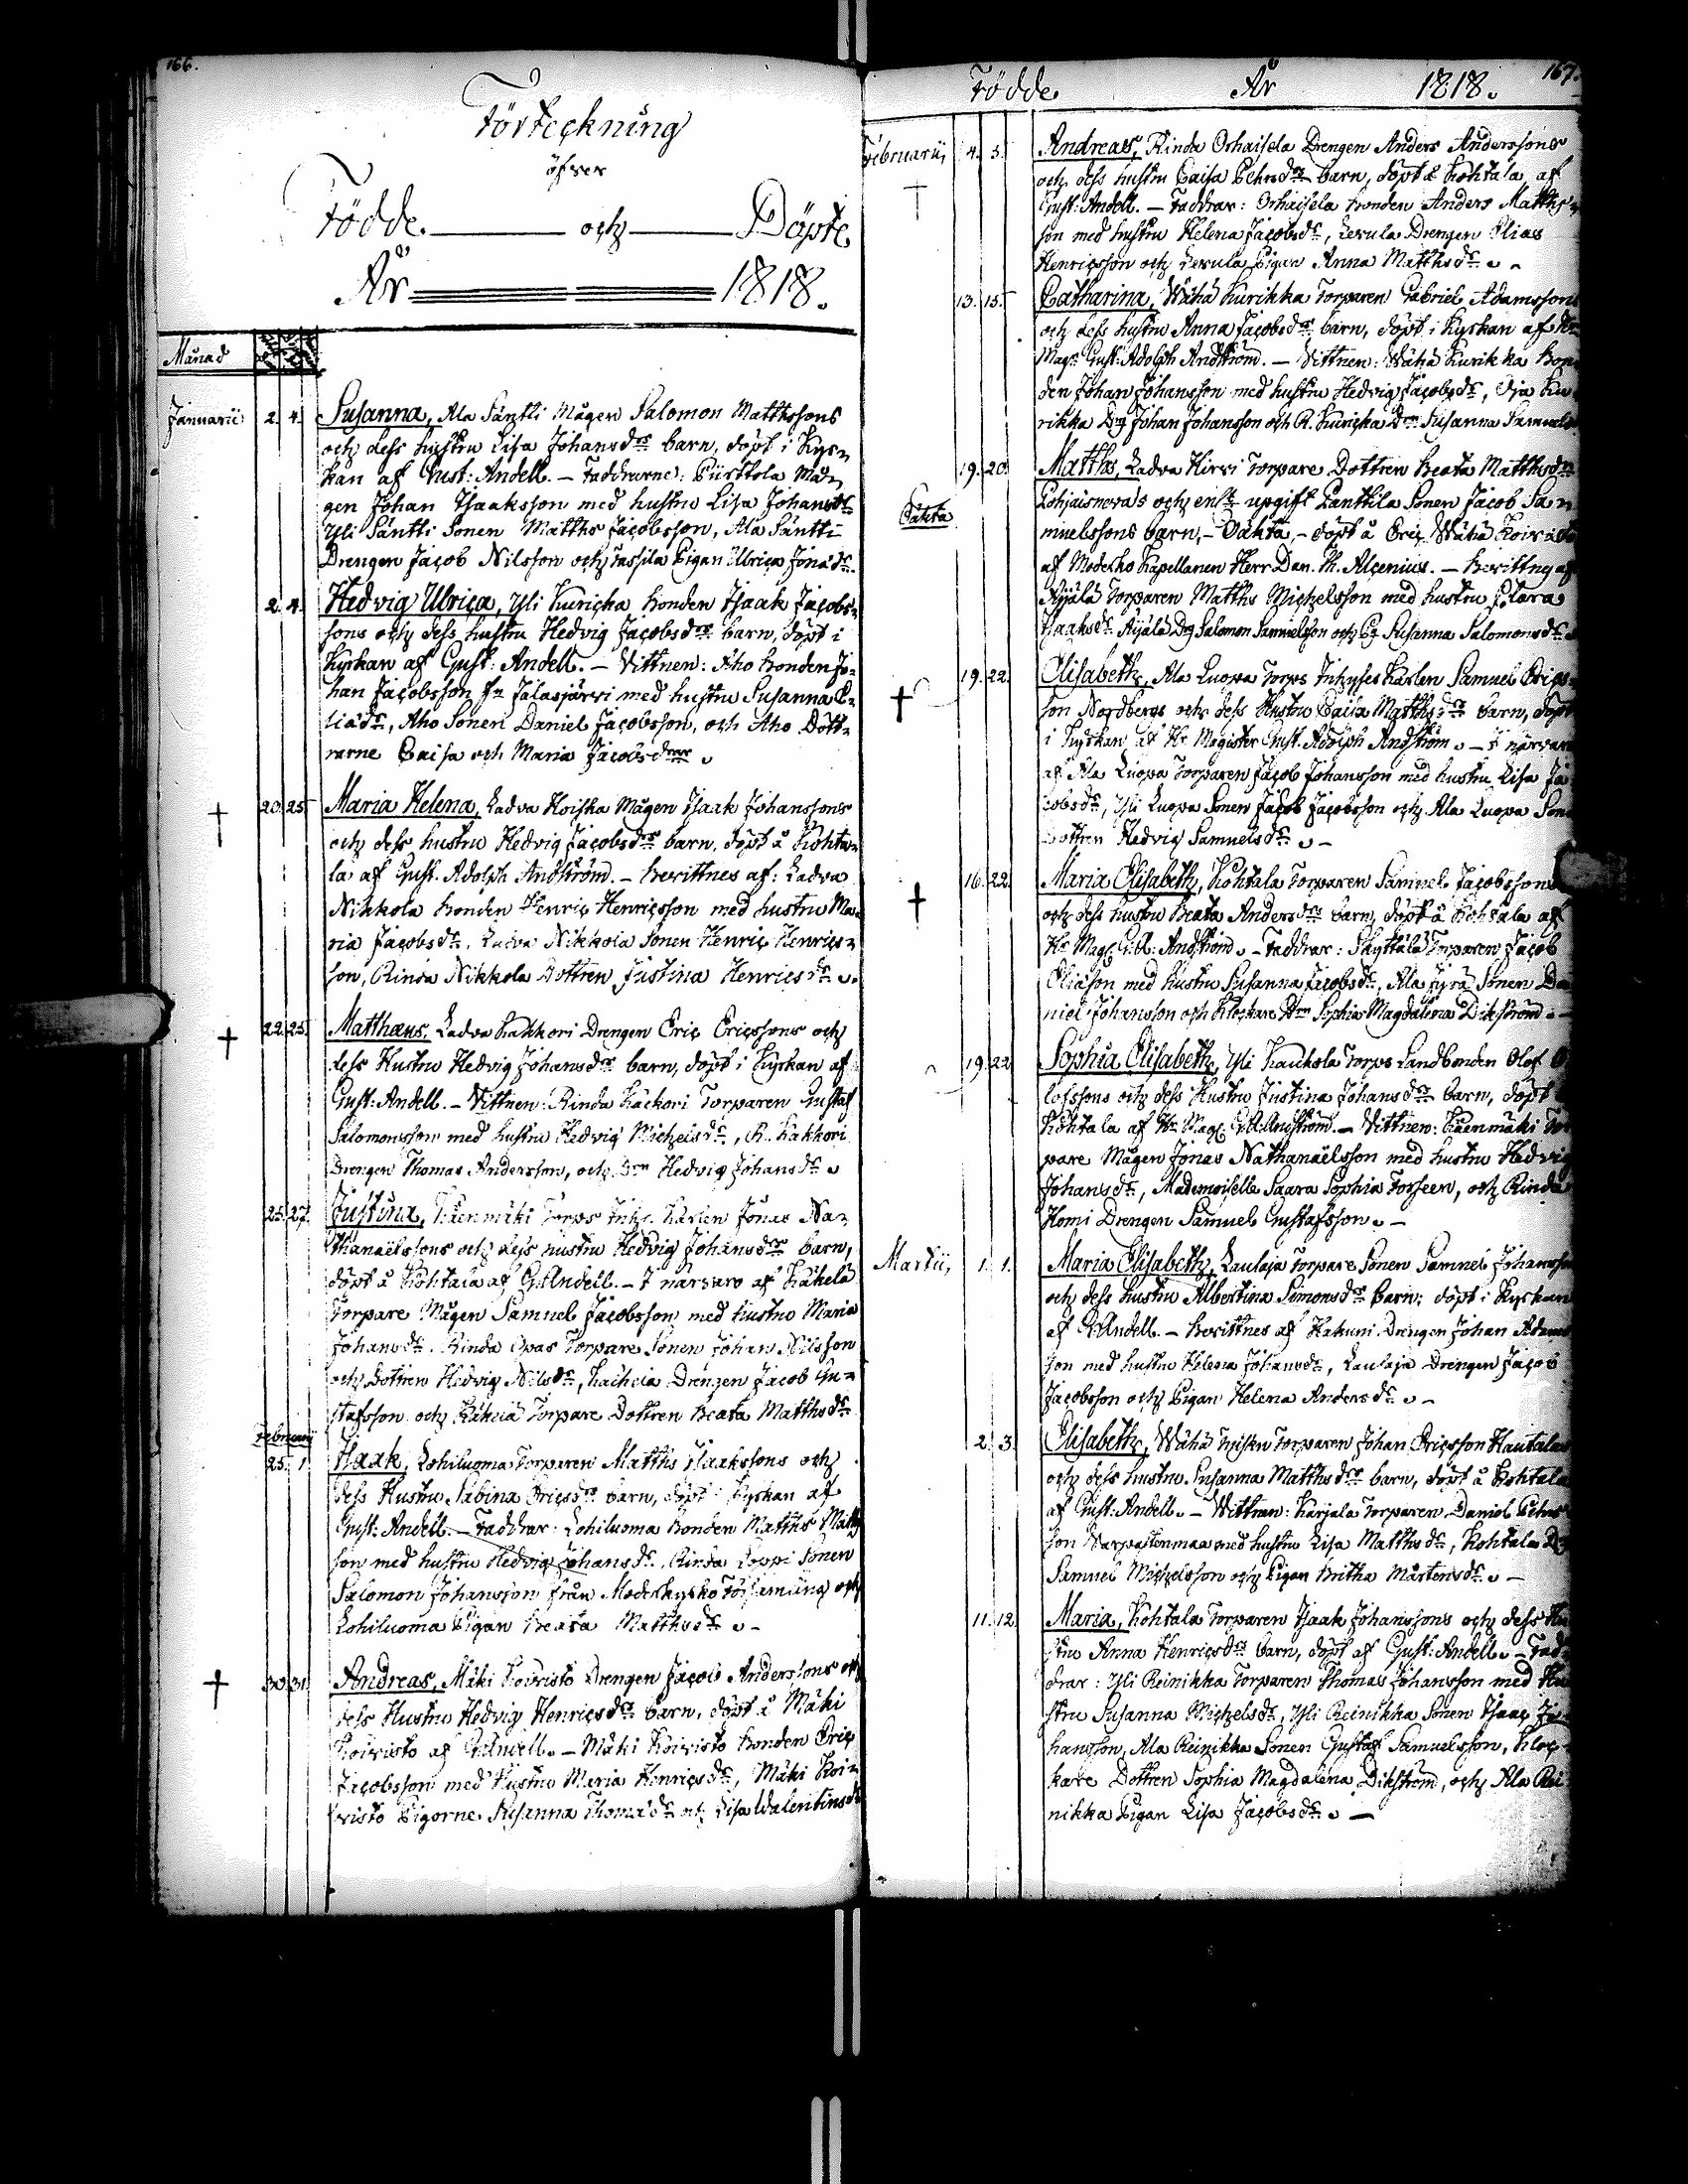 166.
Förteckning
öfver
Födde och Döpte
År 1818.
Månad
Januarii 2. 4. Susanna, Ala Säntti Mågen Salomon Matthssons
och dess hustru Lisa Johansdrs barn, döpt i Kyr-
kan af Gust: Andell. – Faddrarne: Piirttola Må-
gen Johan Isaaksson med hustru Lisa Johansdr
Yli Säntti Sonen Matths Jacobsson, Ala Säntti
Drengen Jacob Nilsson och Tassila Pigan Ulrica Jonædr.
2. 4. Hedvig Ulrica, Yli Kuricka bonden Isaak Jacobs-
sons och dess hustru Hedvig Jacobsdrs barn, döpt i
Kyrkan af Gust: Andell. – Vittnen: Aho bonden Jo-
han Jacobsson fr Jalasjärvi med hustru Susanna E-
liædr, Aho Sonen Daniel Jacobsson, och Aho Dött-
rarne Caisa och Maria Jacobsdrar
20. 25 Maria Helena, Ladva Koiska Mågen Isaak Johanssons
och dess hustru Hedvig Jacobsdrs barn, döpt å Kohta-
la af Gust. Adolph Andström. – Bevittnes af: Ladva
Nikkola bonden Henric Henricsson med hustru Ma-
ria Jacobsdr, Ladva Nikkola Sonen Henric Henrics-
son, Rinda Nikkola Dottren Justina Henricsdr
22. 25. Matthæus, Ladva Kakkori Drengen Eric Ericssons och
dess Hustru Hedvig Johansdrs barn, döpt i Kyrkan af
Gust: Andell. – Vittnen: Rinda Kackori Torparen Gustaf
Salomonsson med hustru Hedvig Michelsdr, R. Kakkori
Drengen Thomas Andersson, och Drn Hedvig Johansdr
25. 27. Justina, Käenmäki Torps Inhs. Karlen Jonas Na-
thanaëlssons och dess hustru Hedvig Johansdrs barn,
döpt å Kohtala af G. Andell. – I närvaro af Kähelä
Torpare Mågen Samuel Jacobsson med hustru Maria
Johansdr. Rinda Opas Torpare Sonen Johan Nilsson
och Dottren Hedvig Nilsdr, Drengen Jacob Gu-
stafsson och Torpare Dottren Beata Matthsdr
Februarii
25. 1 Isaak, Lohiluoma Torparen Matths Isaakssons och
dess Hustru Sabina Ericsdrs barn, döpt i Kyrkan af
Gust: Andell. – Faddrar: Lohiluoma bonden Matths Matths
son med hustru Hedvig Johansdr, Rinda Loppi Sonen
Salomon Johansson från Moderkyrko Församling och
Lohiluoma Pigan Beata Matthsdr –
30. 31 Andreas, Mäki Koivisto Drengen Jacob Anderssons och
dess Hustru Hedvig Henricsdrs barn, döpt å Mäki
Koivisto af G: Andell. – Mäki Koivisto bonden Eric
Jacobsson med Hustru Maria Henricsdr, Mäki Koi-
visto Pigorne Susanna Thomædr och Lisa Walentinsdr
167.
Födde År 1818.
Februarii, 4. 5. Andreas, Rinda Orhaisela Drengen Anders Anderssons
och dess hustru Caisa Pehrsdrs barn, döpt å Kohtala af
Gust: Andell. – Faddrar: Orhaisela bonden Anders Matths-
son med hustru Helena Jacobsdr, Levula Drengen Elias
Henricsson och Levula Pigan Anna Matthsdr –
13. 15. Catharina, Wähä Kurikka Torparen Gabriel Adamssons
och dess hustru Anna Jacobsdrs barn, döpt i Kyrkan af Hr
Magr Gust: Adolph Andström. – Vittnen: Wähä Kurikka Bon-
den Johan Johansson med hustru Hedvig Jacobsdr, Oja Ku
rikka Dng Johan Johansson och R. Kuricka Drn Susanna Samuels
19. 20. Matths, Ladva Hirvi Torpare Dottren Beata Matthsdrs
och enlt upgift Panttila Sonen Jacob Sa-
muelssons barn, – Oäkta, – döpt å Eric Wähä Koivisto
af Moderko Kapellanen Herr Dan. H. Alcenius. – Bevittng af
Äijälä Torparen Matths Michelsson med hustru Clara
Isaaksdr Äijälä Dng Salomon Samuelsson och Pg Susanna Salomonsdr
Oäkta
19. 22. Elisabeth, Ala Luopa Torps Inhyses Karlen Samuel Erics-
son Nordbergs och dess Hustru Caisa Matthsdrs barn, döpt
i Kyrkan af Hr Magister Gust. Adolph Andström. – I närvaro
af Ala Luopa Torparen Jacob Johansson med hustru Lisa Ja
cobsdr, Yli Luopa Sonen Jacob Jacobsson och Ala Luopa Sone
Dottren Hedvig Samuelsdr –
16. 22. Maria Elisabeth, Kohtala Torparen Samuel Jacobssons
och dess hustru Beata Andersdrs barn, döpt å Kohtala af
Hr Mag: G: A: Andström. – Faddrar: Skyttälä Torparen Jacob
Eliäson med hustru Susanna Jacobsdr, Ala Jyrä Sonen Da
niel Johansson och Klockare Drn Sophia Magdalena Dikström –
19. 22 Sophia Elisabeth, Yli Kaukola Torps Landbonden Olof O
lofssons och dess Hustru Justina Johansdrs barn, döpt
Kohtala af Hr Mag: G: A: Andström. – Vittnen: Käenmäki Tor
pare Mågen Jonas Nathanaëlsson med hustru Hedvig
Johansdr, Mademoiselle Saara Sophia Forseen, och Rinda
Homi Drengen Samuel Gustafsson. –
Martii, 1. 1. Maria Elisabeth, Laulaja Torpare Sonen Samuel Johansson
och dess hustru Albertina Simonsdrs barn; döpt i Kyrkan
af G: Andell. – Bevittnes af Hakuni Drengen Johan Adams
son med hustru Helena Johansdr, Laulaja Drengen Jacob
Jacobsson och Pigan Helena Andersdr –
2. 3. Elisabeth, Wähä Torparen Johan Ericsson Hautalas
och dess hustru Susanna Matthsdrs barn, döpt å Kohtala
af Gust: Andell. – Wittnen: Karjala Torparen Daniel Pehrs
son med hustru Lisa Matthsdr, Kohtala Dg
Samuel Michelsson och Pigan Britha Mårtensdr –
11. 12. Maria, Kohtala Torparen Isaak Johanssons och dess Hu
stru Anna Henricsdrs barn, döpt af Gust: Andell. – Fad-
drar: Yli Reinikka Torparen Thomas Johansson med Hu
stru Susanna Michelsdr, Yli Reinikka Sonen Isaac Jo
hansson, Ala Reinikka Sonen Gustaf Samuelsson, Kloc-
kare Dottren Sophia Magdalena Dikström, och Ala Rei
nikka Pigan Lisa Jacobsdr –